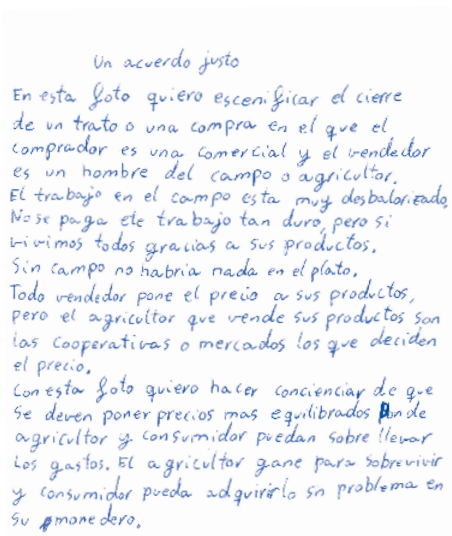 Un acuerdo justo
En esta foto quiero escenificar el cierre
de un trato o una compra en el que el
comprador es una comercial y el vendedor
es un hombre del campo o agricultor.
El trabajo en el campo esta muy desbalorizado,
No se paga ete trabajo tan duro, pero si
vivimos todos gracias a sus productos.
Sin campo no habria nada en el plato.
Todo vendedor pone el precio a sus productos,
pero el agricultor que vende sus productos son
las cooperativas o mercados los que deciden
el precio.
Con esta foto quiero hacer concienciar de que
se deven poner precios mas equilibrados Donde
agricultor y consumidor puedan sobre llevar
los gastos. El agricultor gane para sobrevivir
y consumidor pueda adquirirlo sn problema en
su monedero.